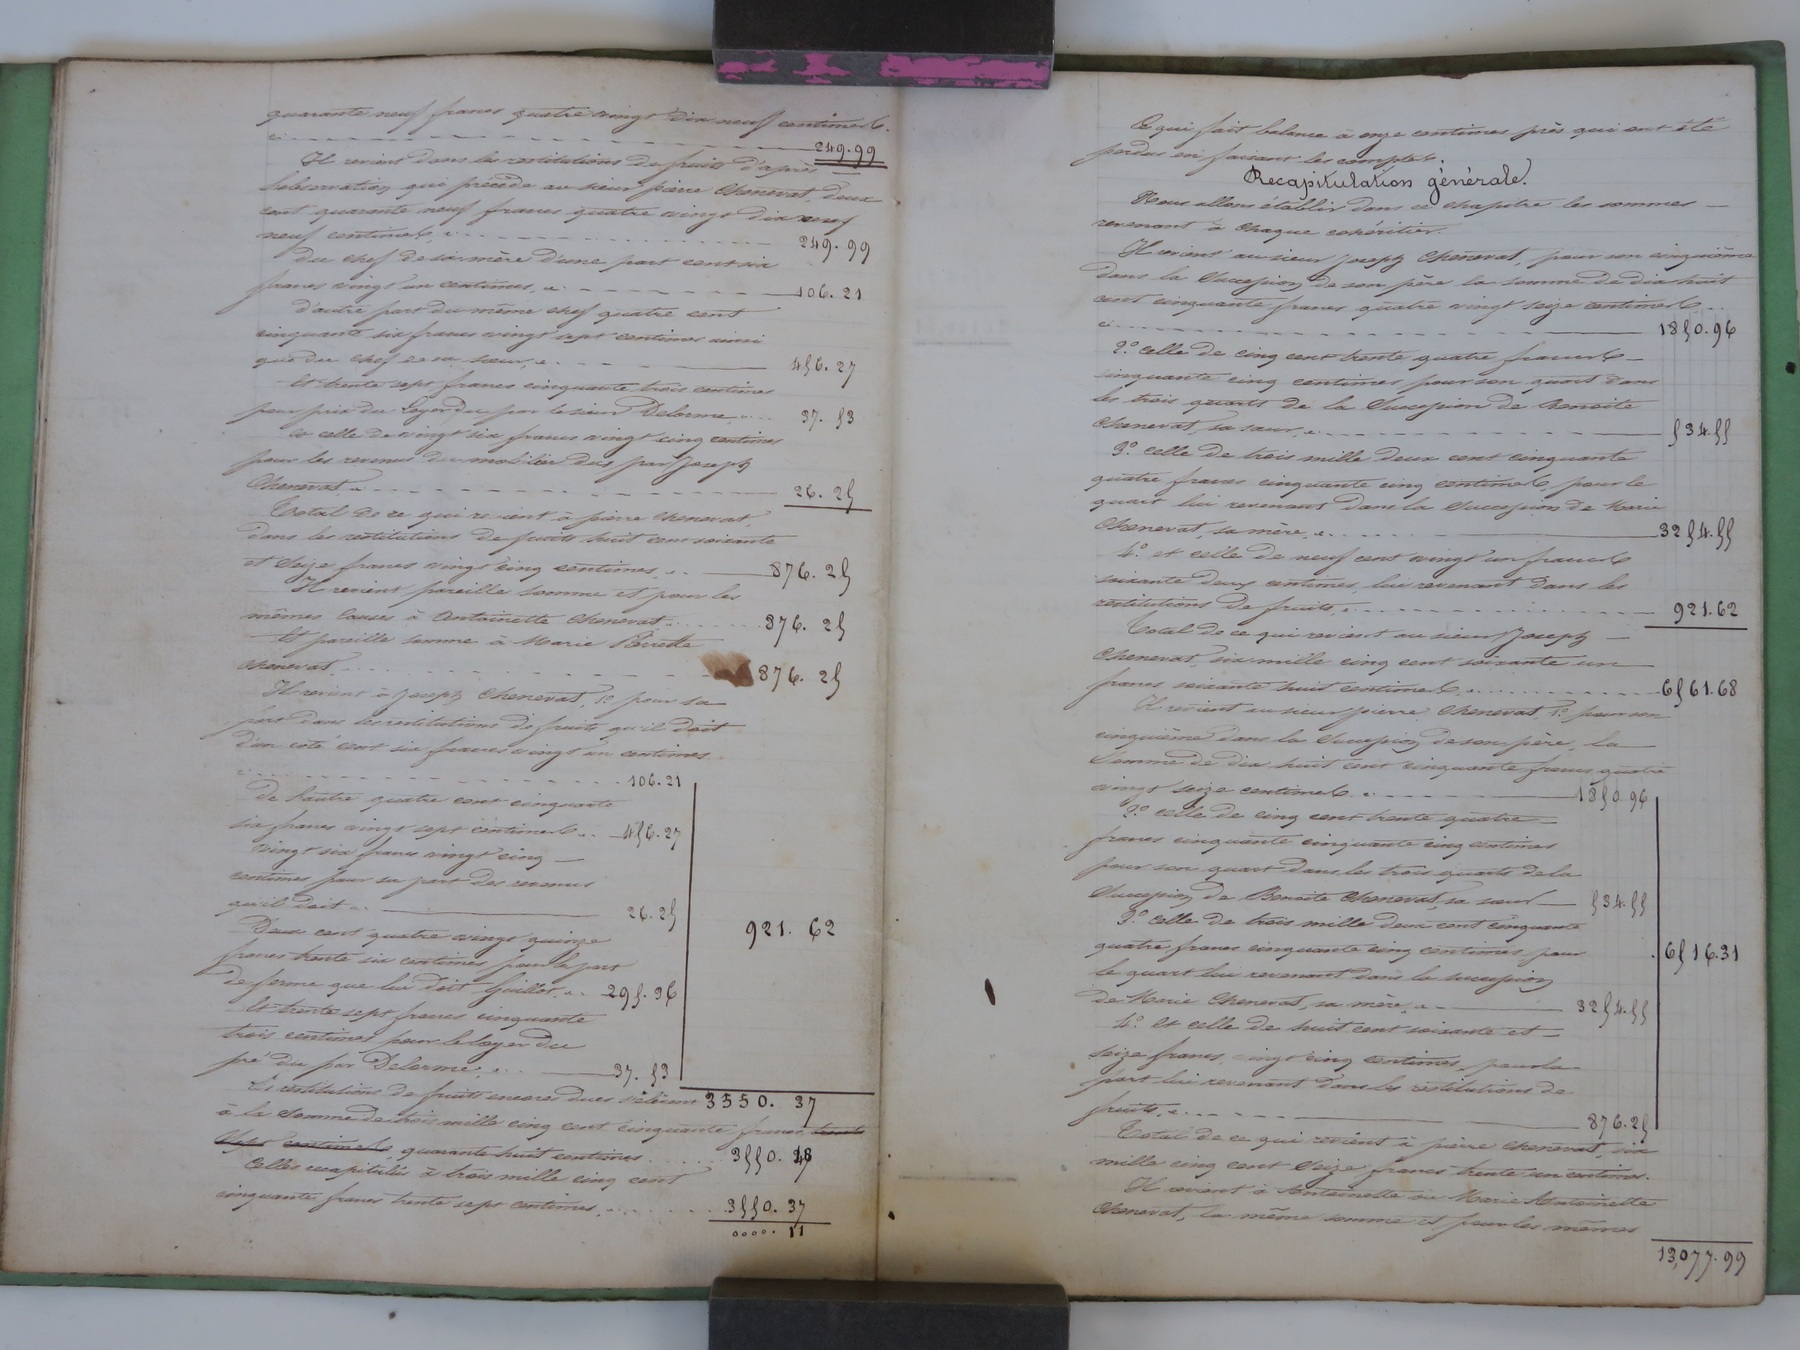 quarante neuf francs quatre vingt dix neuf centimes.
ci 249.99
Il revient dans les restitutions de fruits d'après
l'observation qui précède au sieur pierre Chenevat, deux
cent quarante neuf francs quatre vingt dix neuf
neuf centimes, ci 249.99
Du chef de sa mère d'une part cent six
francs vingt un centimes, ci 106.21
d'autre part du même chef quatre cent
cinquante six francs vingt sept centimes ainsi
que du chef de sa sœur, ci 456.27
Et trente sept francs cinquante trois centimes
pour prix du loyer du par le sieur Delorme 37.53
et celle de vingt six francs vingt cinq centimes
pour les revenus du mobilier dus par Joseph
Chenevat 26.25
Total de ce qui revient à pierre Chenevat,
dans les restitutions de fruits huit cent soixante
et seize francs vingt cinq centimes 876.25
Il revient pareille somme et pour les
mêmes causes à Antoinette Chenevat 876.25
Et pareille somme à Marie Pierrette
Chenevat 876.25
Il revient à Joseph Chenevat, 1° pour sa
part dans les restitutions de fruits qu'il doit
d'un coté cent six francs vingt un centimes
ci 106.21
De l'autre quatre cent cinquante
six francs vingt sept centimes 456.27
vingt six francs vingt cinq
centimes pour sa part des revenus
qu'il doit 26.25
Deux cent quatre vingt quinze
francs trente six centimes pour la part
de ferme que lui doit Guillot 295.36
Et trente sept francs cinquante
trois centimes pour le loyer du
pré du par Delorme, ci 37.53
921.62
3550.37
Les restitutions de fruits encore dues s'élèvent
à la somme de trois mille cinq cent cinquante francs trente
sept centimes, quarante huit centimes 3550.48
Celles recapitulées à trois mille cinq cent
cinquante francs trente sept centimes 3550.37
0000.11
Ce qui fait balance à onze centimes près qui ont été
perdus en faisant les comptes.
Recapitulation générale.
Nous allons établir dans ce chapitre les sommes
revenant à chaque cohéritier.
Il revient au sieur Joseph Chenevat, pour son cinquième
dans la succession de son père la somme de dix huit
cent cinquante francs quatre vingt seize centimes
ci 1850.96
2° celle de cinq cent trente quatre francs
cinquante cinq centimes pour son quart dans
les trois quarts de la succession de Benoite
Chenevat, sa sœur, ci 534.55
3° celle de trois mille deux cent cinquante
quatre francs cinquante cinq centimes pour le
quart lui revenant dans la succession de Marie
Chenevat, sa mère, ci 3254.55
4° et celle de neuf cent vingt un francs
soixante deux centimes, lui revenant dans les
restitutions de fruits, ci 921.62
Total de ce qui revient au sieur Joseph
Chenevat, six mille cinq cent soixante un
francs soixante huit centimes 6561.68
Il revient au sieur pierre Chenevat, 1° pour son
cinquième dans la succession de son père, la
somme de dix huit cent cinquante francs quatre
vingt seize centimes 1850.96
2° celle de cinq cent trente quatre
francs cinquante cinquante cinq centimes
pour son quart dans les trois quarts de la
succession de Benoite Chenevat, sa sœur 534.55
3° celle de trois mille deux cent cinquante
quatre francs cinquante cinq centimes pour
le quart lui revenant dans la succession
de Marie Chenevat, sa mère, ci 3254.55
4° et celle de huit cent soixante et
seize francs vingt cinq centimes, pour la
part lui revenant dans les restitutions de
fruits, ci 876.25
6516.31
Total de ce qui revient à pierre Chenevat, six
mille cinq cent seize francs trente un centimes.
Il revient à Antoinette ou Marie Antoinette
Chenevat, la même somme et pour les mêmes
13,077.99